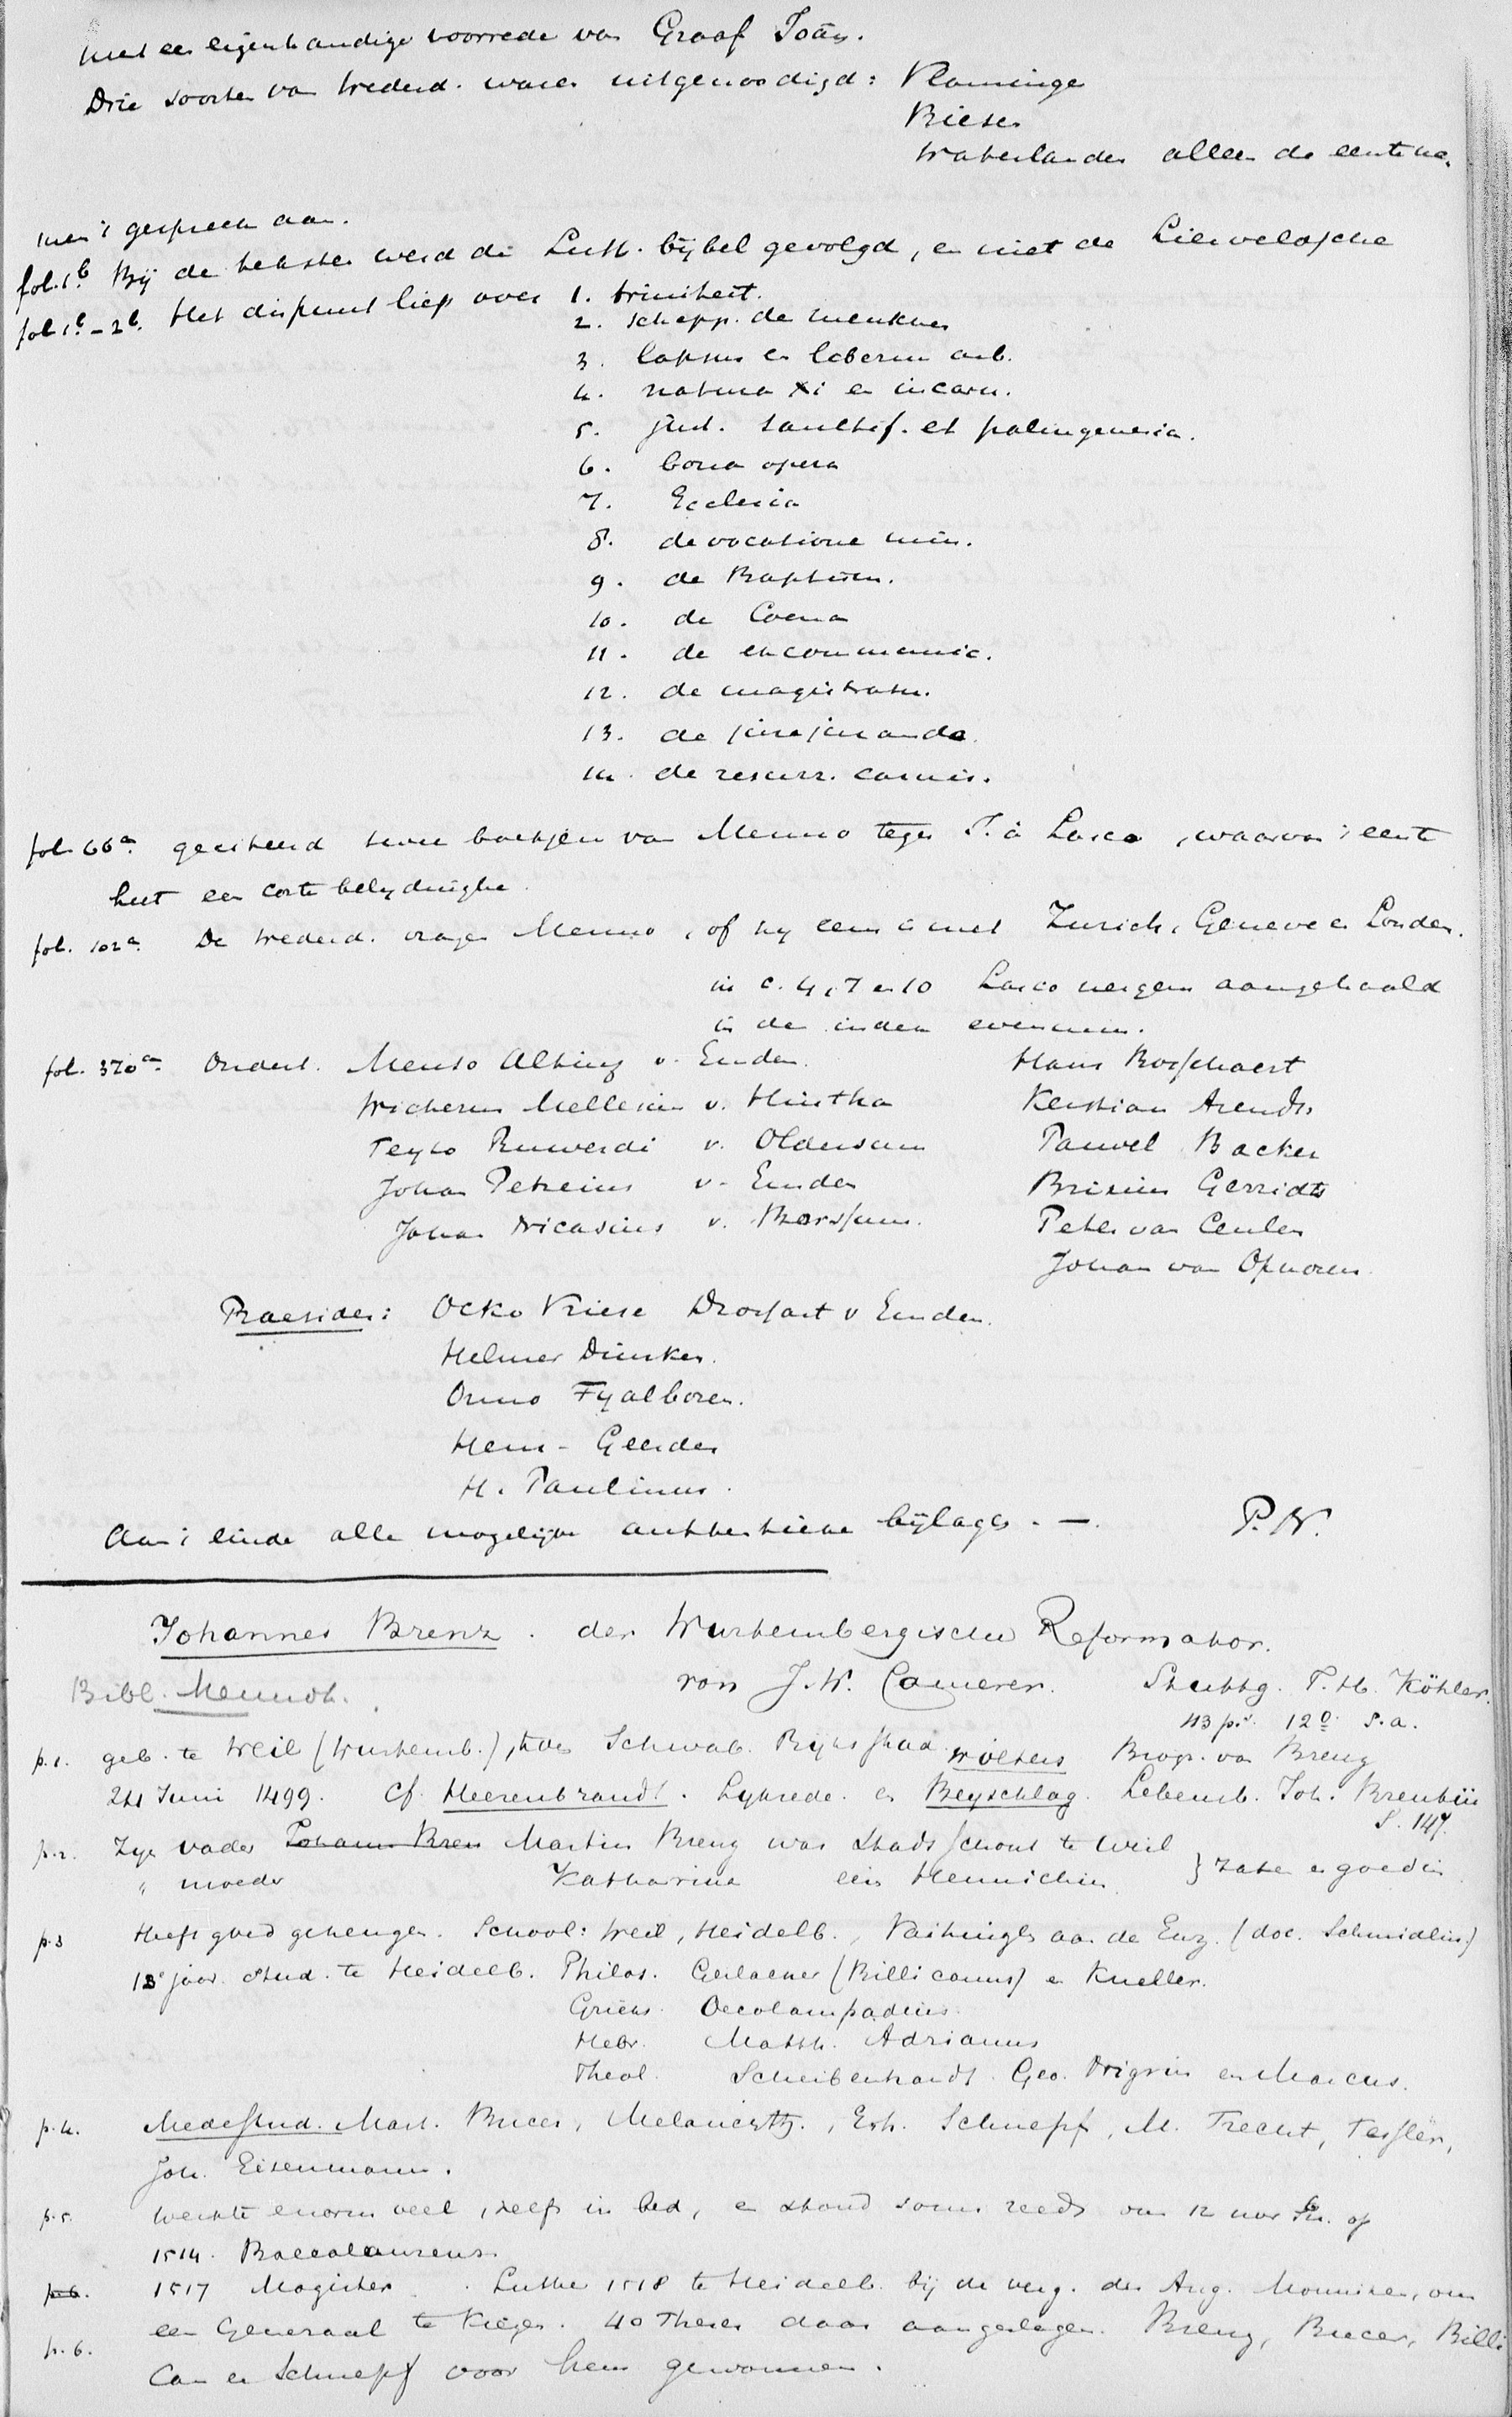 met een eigenhandige voorrede van Graaf Joān.
Drie soorten van wederd. waren uitgenoodigd: Vlamingen
Friesen
Waterlanders alleen de eerste na.
men 't gesprek aan.
fol. 1b Bij de teksten werd de Luth. bijbel gevolgd, en niet de Liesveldsche
fol 1b – 2b. Het dispuut liep over 1. triniteit.
2. schepp. de menschen
3. lapsus en liberum arb.
4. natura Xi en incarn.
5. just. sanctif. et palingenesia.
6. bona opera
7. Ecclesia
8. de vocatione min.
9. de Baptism.
10. de Coena
11. de excommunic.
12. de magistratu.
13. de jurejurando
14. de resurr. carnis.
fol. 66a. geciteerd twee boekjen van Menno tegen J. à Lasco, waarvan 't eerste
heet een corte belydinghe.
fol. 102a. De wederd. vragen Menno, of hy eens is met Zurich, Geneve en Londen.
in c. 4, 7 en 10 Lasco nergens aangehaald
in de index evenmin.
fol. 370a. Ondert. Menso Alting v. Emden. Hans Bosschaert
Wicherus Mellesius v. Hintha Kerstian Arends
Feyto Ruwerdi v. Oldersum Pauwel Backer
Johan Petreius v. Emden Brixius Gerridts
Johan Nicasius v. Borssum. Peter van Ceulen
Johan van Ophoren
Praesides: Ocko Friese Drossart v Emden.
Helmer Dircksen.
Onno Fyalboren.
Hem– Geerdes
H. Paulinus.
Aan 't einde alle mogelijke authentieke bijlagen. — P.N.
Johannes Brenz. der Wurtembergische Reformator.
Bibl. Mennon. von J.W. Camerer. Stuttg. F.H. Köhler.
43 p.s. 12o. s.a.
p.1. geb. te Weil (Wurtemb.), toen Schwab. Rijksstad Wolters Biogr. van Brenz
24 Juni 1499. Cf. Heerenbrandt. Lykrede. en Beyschlag. Lebensb. Joh. Brentii
S. 147.
p.2. Zijn vader Johann Bren Martin Brenz was Stads schout te Weil
" moeder Katharina een Hennichin } zaten er goed in
p.3 Heeft goed geheugen. School: Weil, Heidelb., Vaihingen aan de Enz. (doc. Schmidlin)
13e jaar stud. te Heidelb. Philos. Gerlacher (Billicanus) en Kneller.
Grieks. Oecolampadius
Hebr. Matth. Adrianus
Theol. Scheibenhardt. Geo. Nigrin en Marcus.
p.4. Medestud. Mart. Bucer, Melanchth., Erh. Schnepf, M. Frecht, Fessler,
Joh. Eisenmann.
p.5. Werkte enorm veel, zelfs in bed, en stond soms reeds om 12 uur op
1514. Baccalaureus.
p.6. 1517 Magister. Luther 1518 te Heidelb. bij de verg. der Aug. Monniken, om
een Generaal te kiezen. 40 Theses daar aangeslagen. Brenz, Bucer, Billi
p.6. Can en Schnepf voor hem gewonnen.